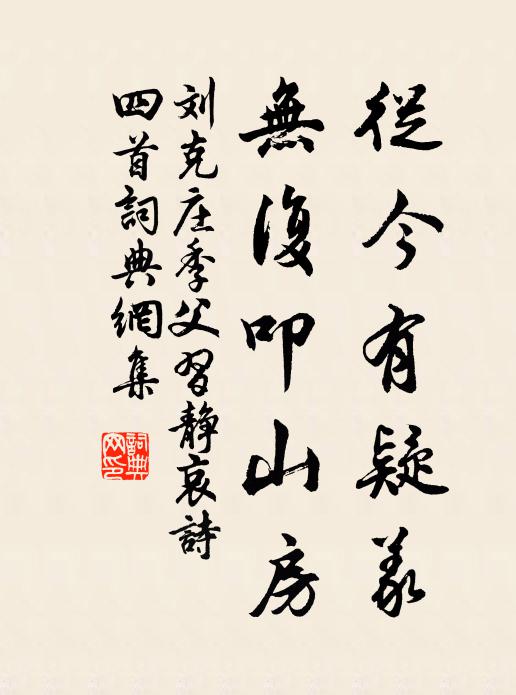 從今有疑義
無復叩山房
刘克庄季父習静哀詩
四首詞典網集
詞典網印